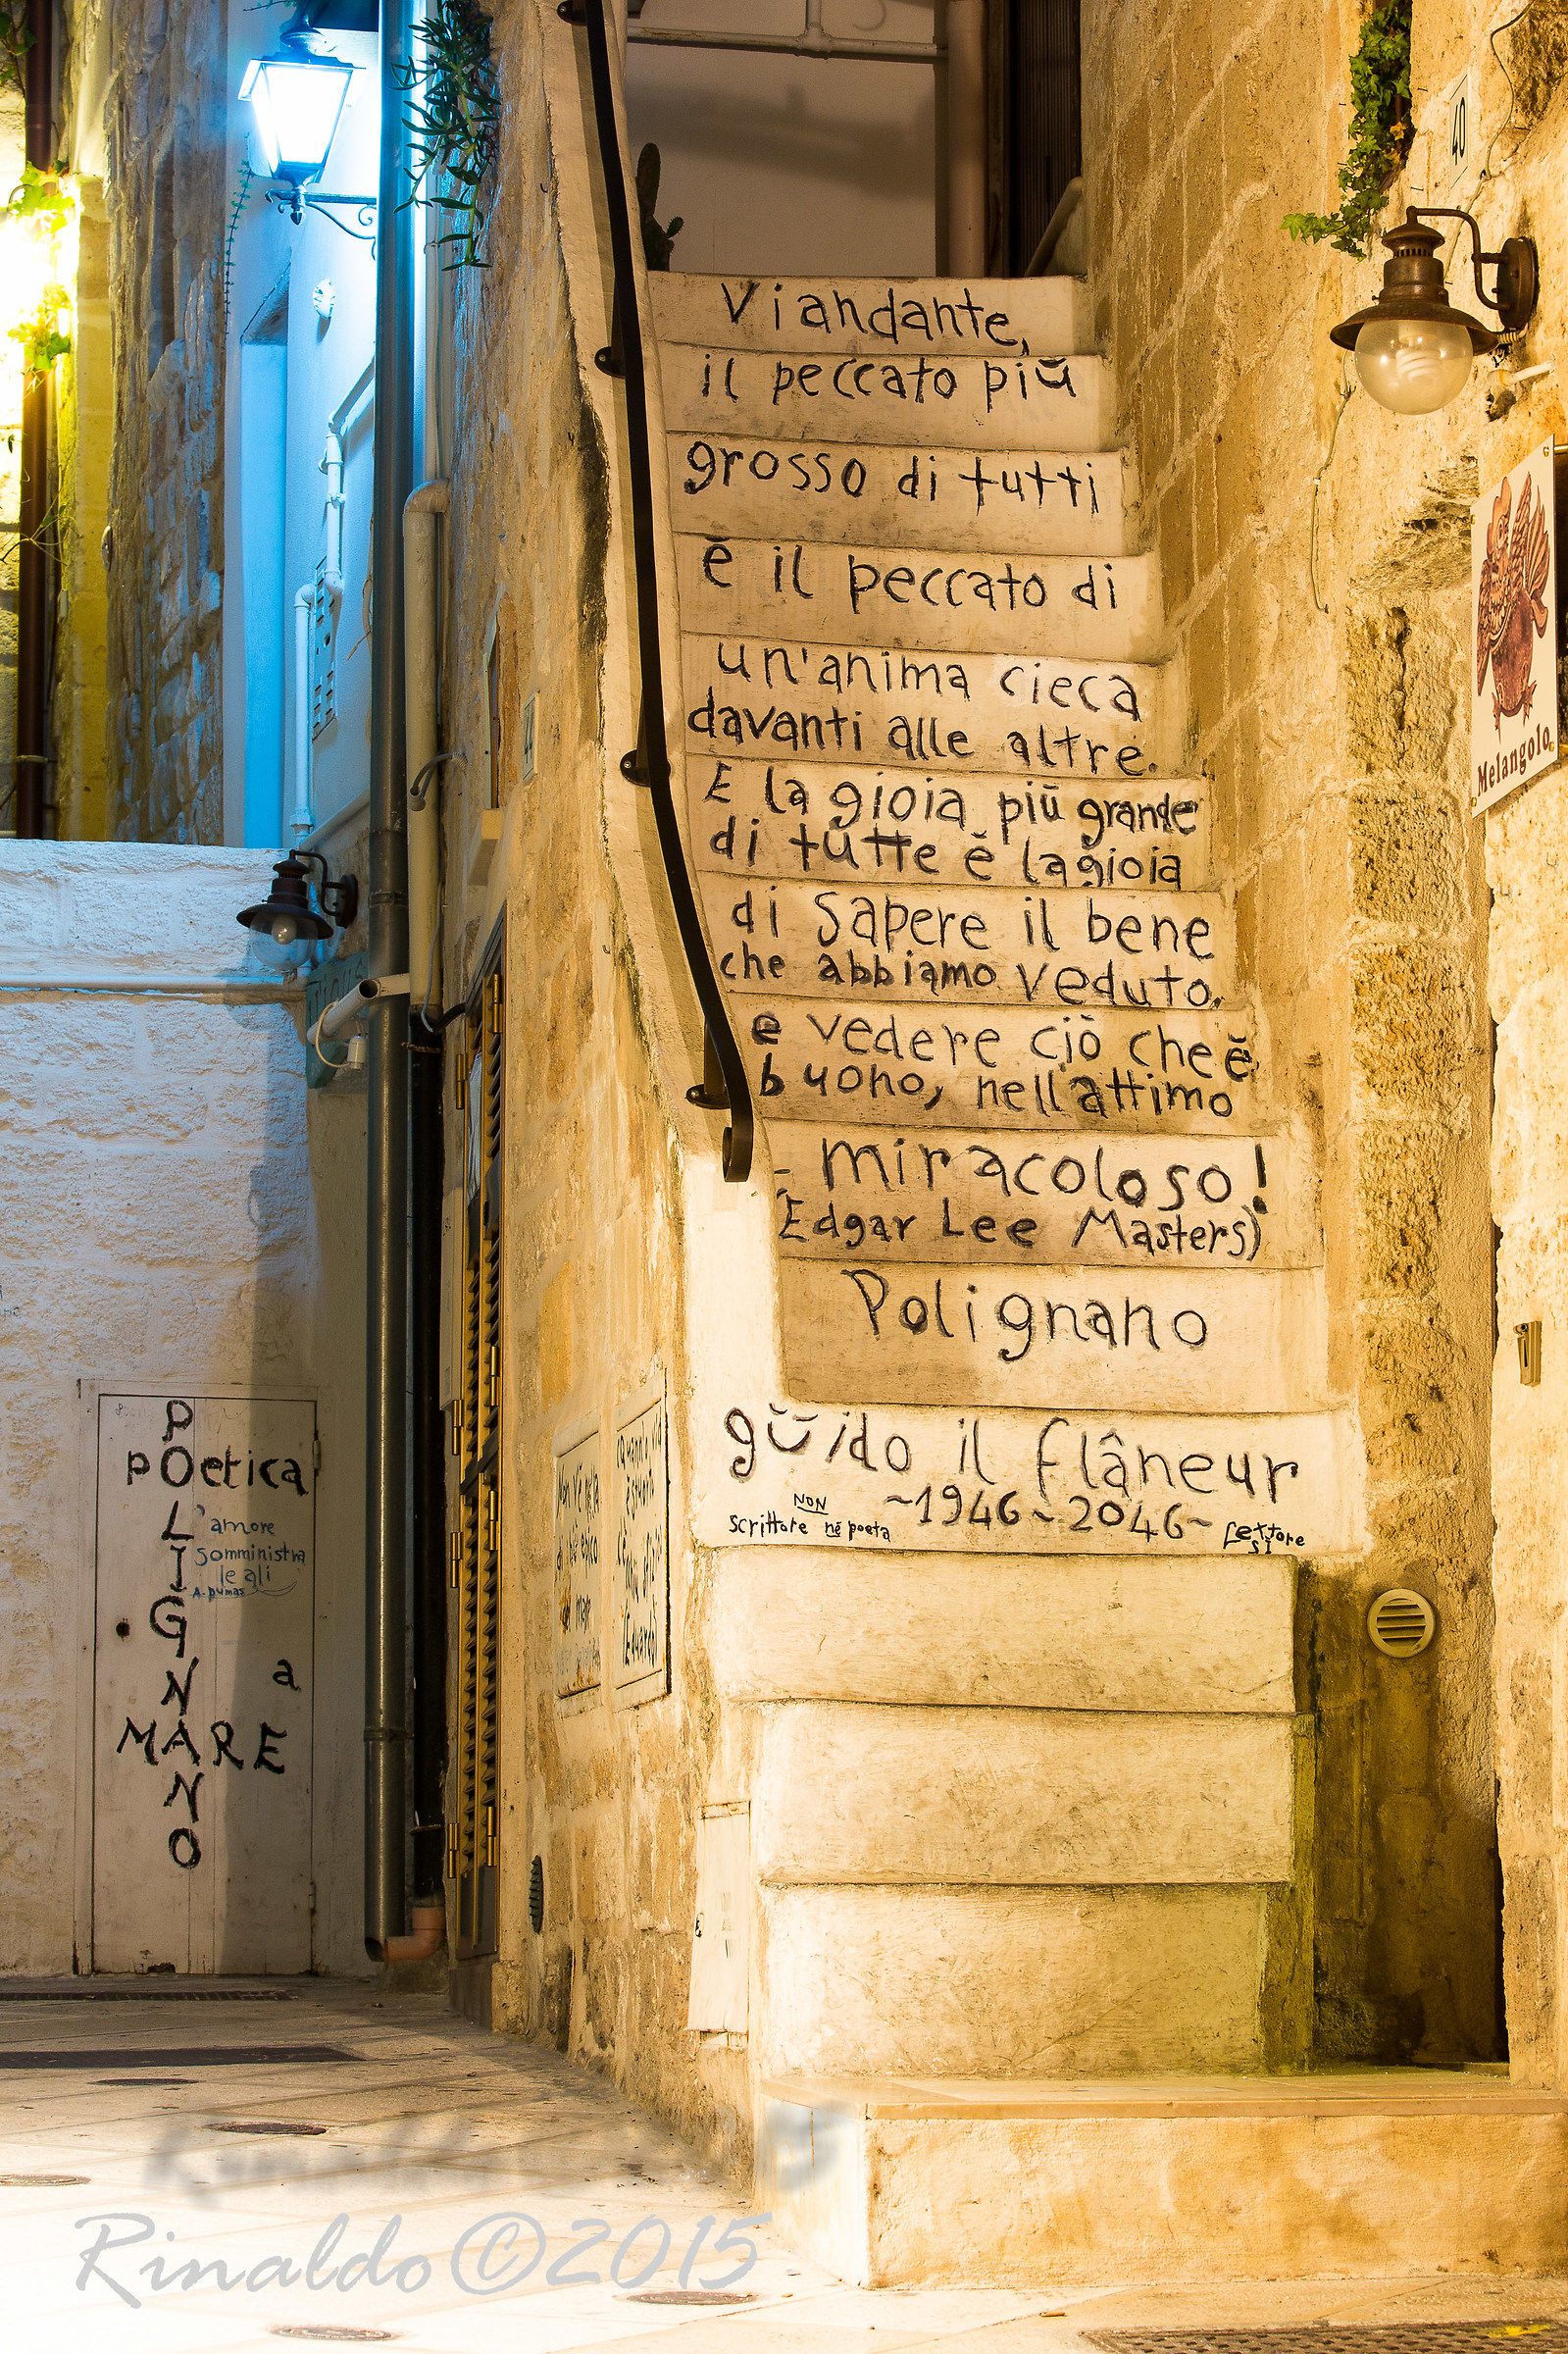 Viandante,
il peccato più
grosso di tutti
è il peccato di
un'anima cieca
davanti alle altre.
E la gioia più grande
di tutte è la gioia
di sapere il bene
che abbiamo veduto,
e vedere ciò che è
buono, nell'attimo
- miracoloso!
(Edgar Lee Masters)
Polignano
guido il flâneur
~1946~2046~
NON
scrittore né poeta
Lettore
sì
40
Melangolo
POLIGNANO
pOetica
L'amore
somministra
le ali
A. Dumas
a
MARE
(Eduardo)
Rinaldo ©2015